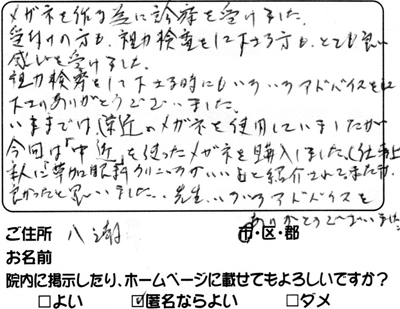 メガネを作る為に診療を受けました。
受付けの方も、視力検査をして下さる方も、とても良い
感じを受けました。
視力検査をして下さる時にもいろいろアドバイスをして
下さりありがとうございました。
いままでは遠近のメガネを使用していましたが
今回は「中近」を使ったメガネを購入しました。(仕事上
友人に「草加眼科クリニックがいいよ」と紹介されて来ましたが、
良かったと思いました。先生、いろいろアドバイスを
ありがとうございました。
ご住所 八潮 市・区・郡
お名前
院内に掲示したり、ホームページに載せてもよろしいですか?
□よい ☑匿名ならよい □ダメ